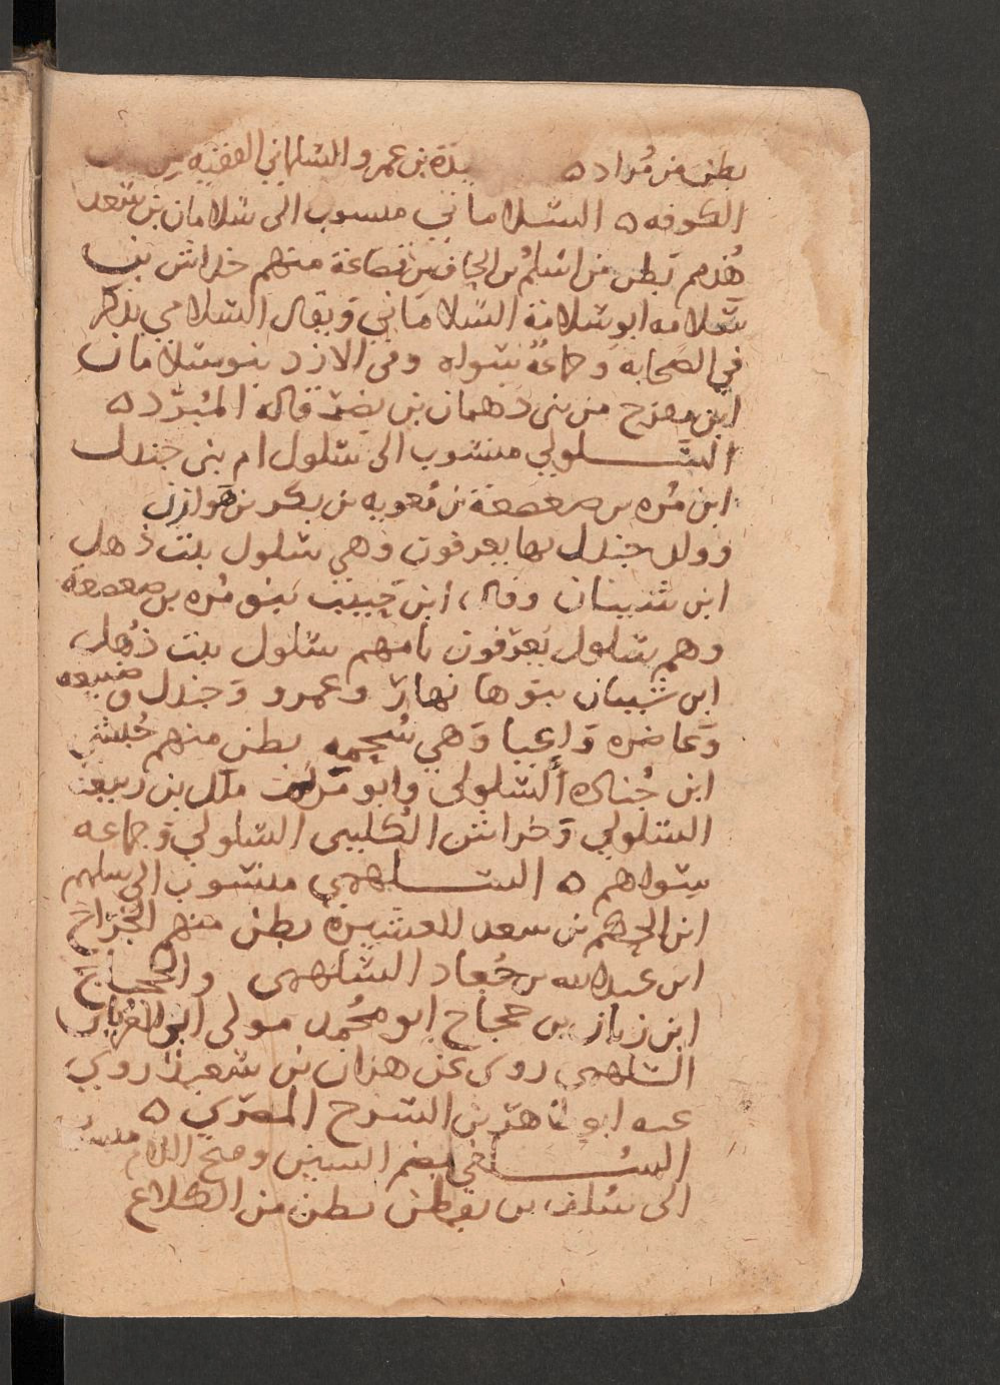 بطن من مُراد ه يدة بن عمرو السلماني الفقيه من
الكوفه ه السلاماني منسوب الى سلامان بن سعد
هُذيم بطن من اسلُم بن الحاف بن قضاعة منهم خداش بن
سلامه ابو سلامة السلاماني وَيقال السلامي يذكر
في الصحابه وَجماعةٌ سواه وفي الازد بنو سلامان
ابن مفرج من بني دهمان بن نصر قاله المُبرّد ه
السلولي منسوب الى سَلول ام بني جندل
ابن مُره بن صعصعة بن مُعويه بن بكر بن هَوازن
وولد جندل بها يعرفون وَهي سلول بنت ذهل
ابن شيبان وقال ابن حَبيب بنو مُره بن صعصعة
وهم سلول يُعرَفون بامهم سلول بنت ذُهل
ابن شيبان بنوها نهارٌ وعمرو وَجندل وَضبيعه
وَغاضره وَاعيا وَهي سُحمه بطن منهم حُبشي
ابن جُناده السلولي وابو مَريم ملك بن ربيعة
السلولي وَخراش الكُليبي السلولي وَجماعه
سواهم ه السلهمي منسوب الى سلهم
ابن الحكم بن سعد العشيرة بطن منهم الجَرّاح
ابن عبدالله بن جُعاد السلهمي والحجاج
ابن زياد بن حجاج ابو مُحمد مولى ابو العُريان
السلهمي روى عن هزان بن سعيد روى
عنه ابو طاهر بن السرح المصري ه
السُلَفي بضم السين وفتح اللام منسوب
الى سُلَف بن يقطن بطن من الكلاع